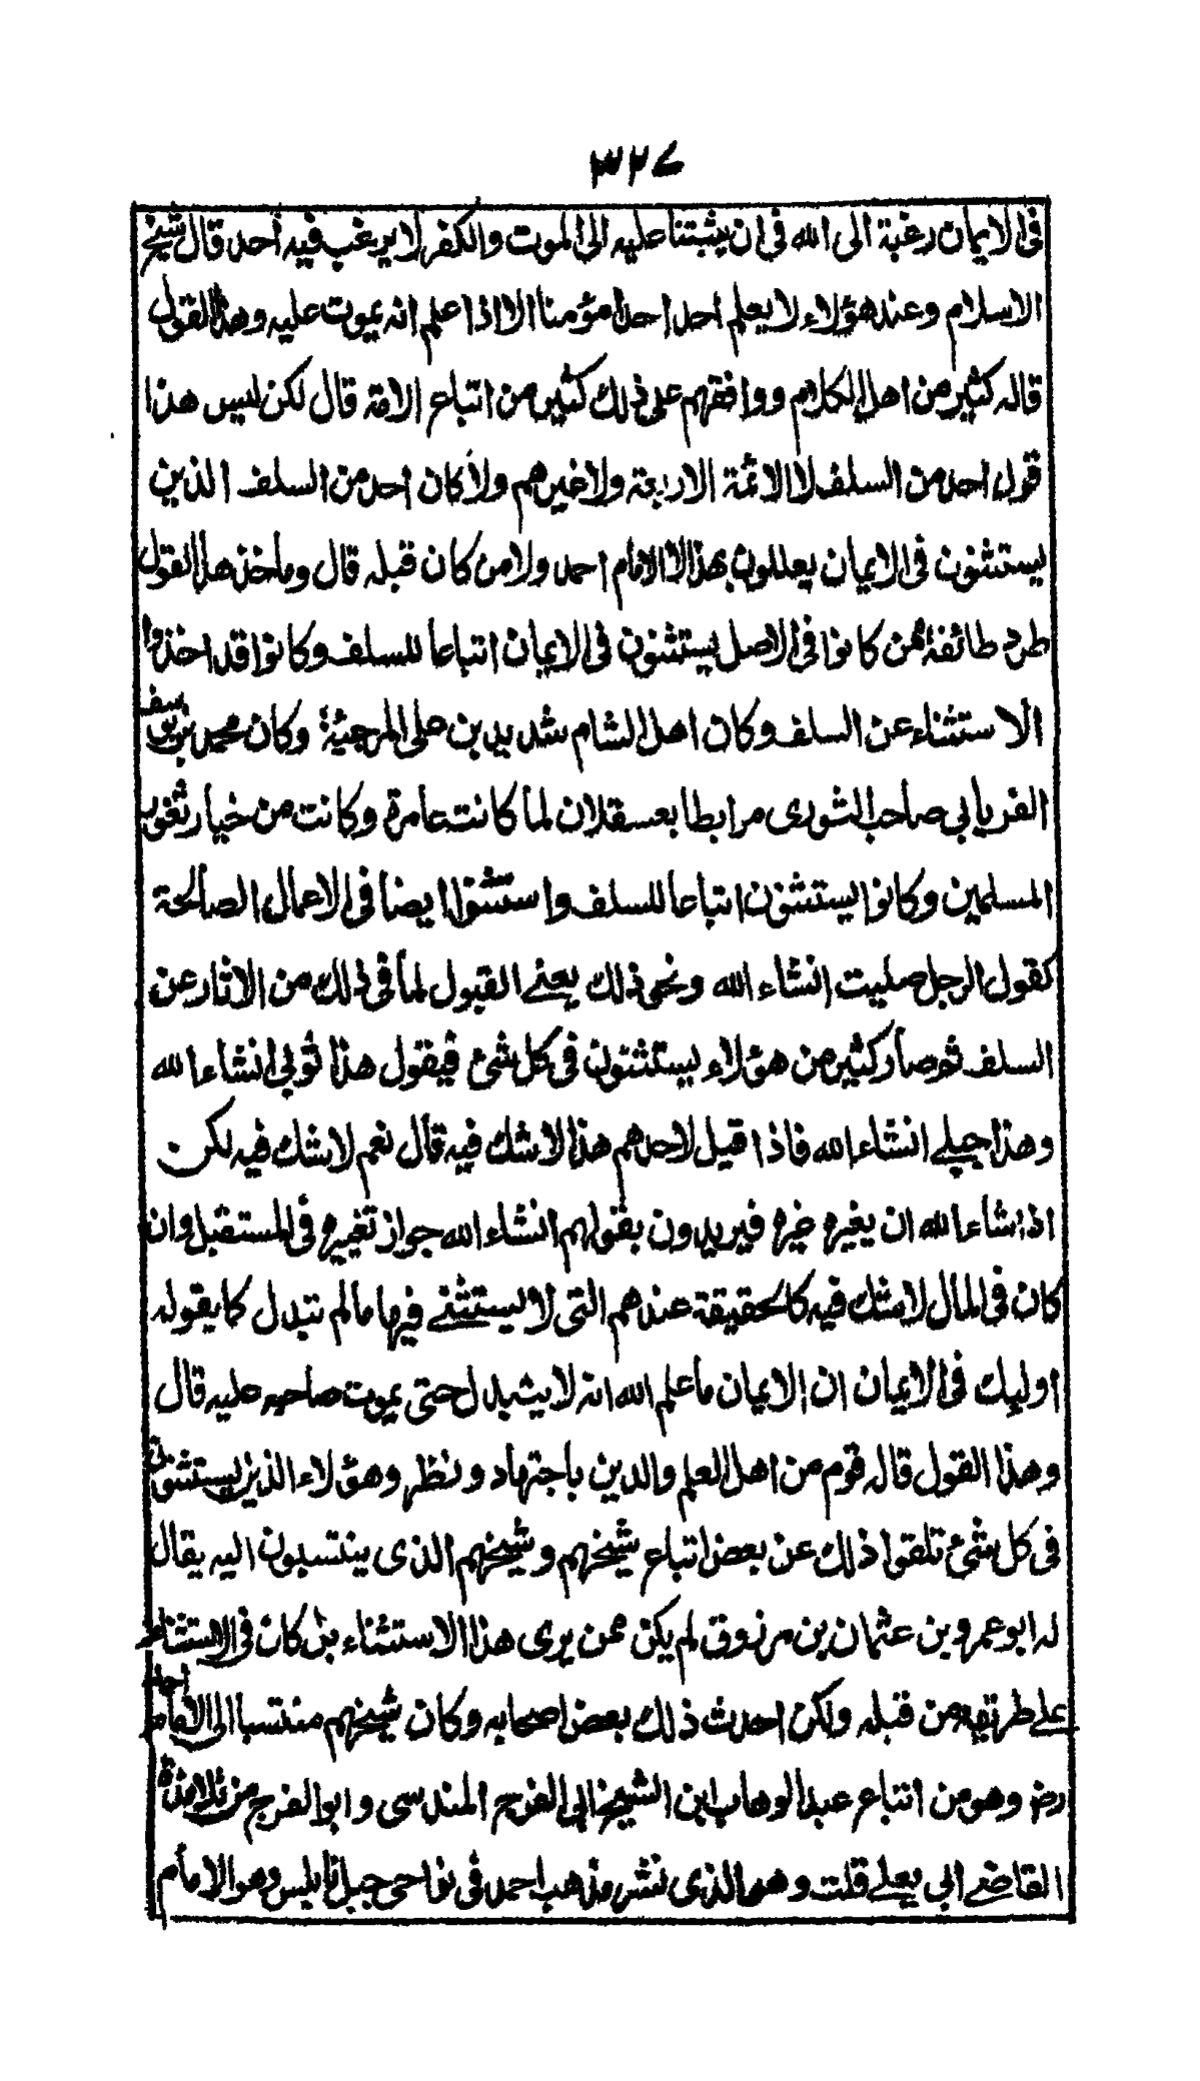 ٣٢٧
فى الايمان رغبة الى الله فى ان يثبتنا عليه الى الموت والكفر لا يرغب فيه احد قال شيخ
الاسلام وعند هؤلاء لا يعلم احد احدا مؤمنا الا اذا علم انه يموت عليه وهذا القول
قاله كثير من اهل الكلام ووافقهم على ذلك كثير من اتباع الائمة قال لكن ليس هذا
قول احد من السلف لا الائمة الاربعة ولا غيرهم ولا كان احد من السلف الذين
يستثنون فى الايمان يعللون بهذا لا الامام احمد ولا من كان قبله قال وماخذ هذا القول
طرد طائفة ممن كانوا فى الاصل يستثنون فى الايمان اتباعا للسلف وكانوا قد اخذوا
الاستثناء عن السلف وكان اهل الشام شديدين على المرجئة وكان محمد بن يوسف
الفريابي صاحب الثورى مرابطا بعسقلان لما كانت عامرة وكانت من خيار ثغور
المسلمين وكانوا يستثنون اتباعا للسلف واستثنوا ايضا فى الاعمال الصالحة
كقول الرجل صليت انشاء الله ونحو ذلك يعنے القبول لما فى ذلك من الاثار عن
السلف ثم صار كثير من هؤلاء يستثنون فى كل شئ فيقول هذا ثوبي انشاء الله
وهذا حبلے انشاء الله فاذا قيل لاحدهم هذا لا شك فيه قال نعم لا شك فيه لكن
اذا شاء الله ان يغيره غيره فيريدون بقولهم انشاء الله جواز تغييره فى المستقبل وان
كان فى الحال لا شك فيه كالحقيقة عندهم التى لا يستثنے فيها ما لم تتبدل كما يقوله
اوليك فى الايمان ان الايمان ما علم الله انه لا يتبدل حتى يموت صاحبه عليه قال
وهذا القول قاله قوم من اهل العلم والدين باجتهاد ونظر وهؤلاء الذين يستثنون
فى كل شئ تلقوا ذلك عن بعض اتباع شيخهم وشيخهم الذى ينتسبون اليه يقال
له ابو عمرو بن عثمان بن مرزوق لم يكن ممن يرى هذا الاستثناء بل كان فى الاستثناء
علے طريقة من قبله ولكن احدث ذلك بعض اصحابه وكان شيخهم منتسبا الى الامام احمد
رضـ وهو من اتباع عبد الوهاب ابن الشيخ ابى الفرج المقدسى وابو الفرج من تلامذة
القاضے ابي يعلے قلت وهو الذى نشر مذهب احمد فى نواحى جبل نابلس وهو الامام